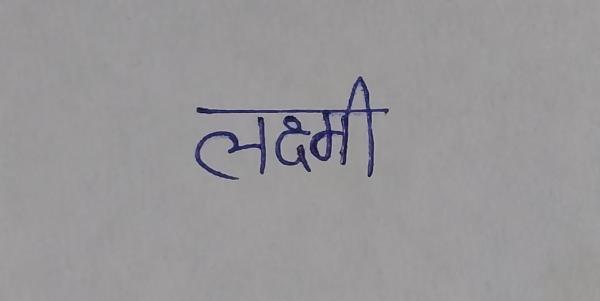 लक्ष्मी